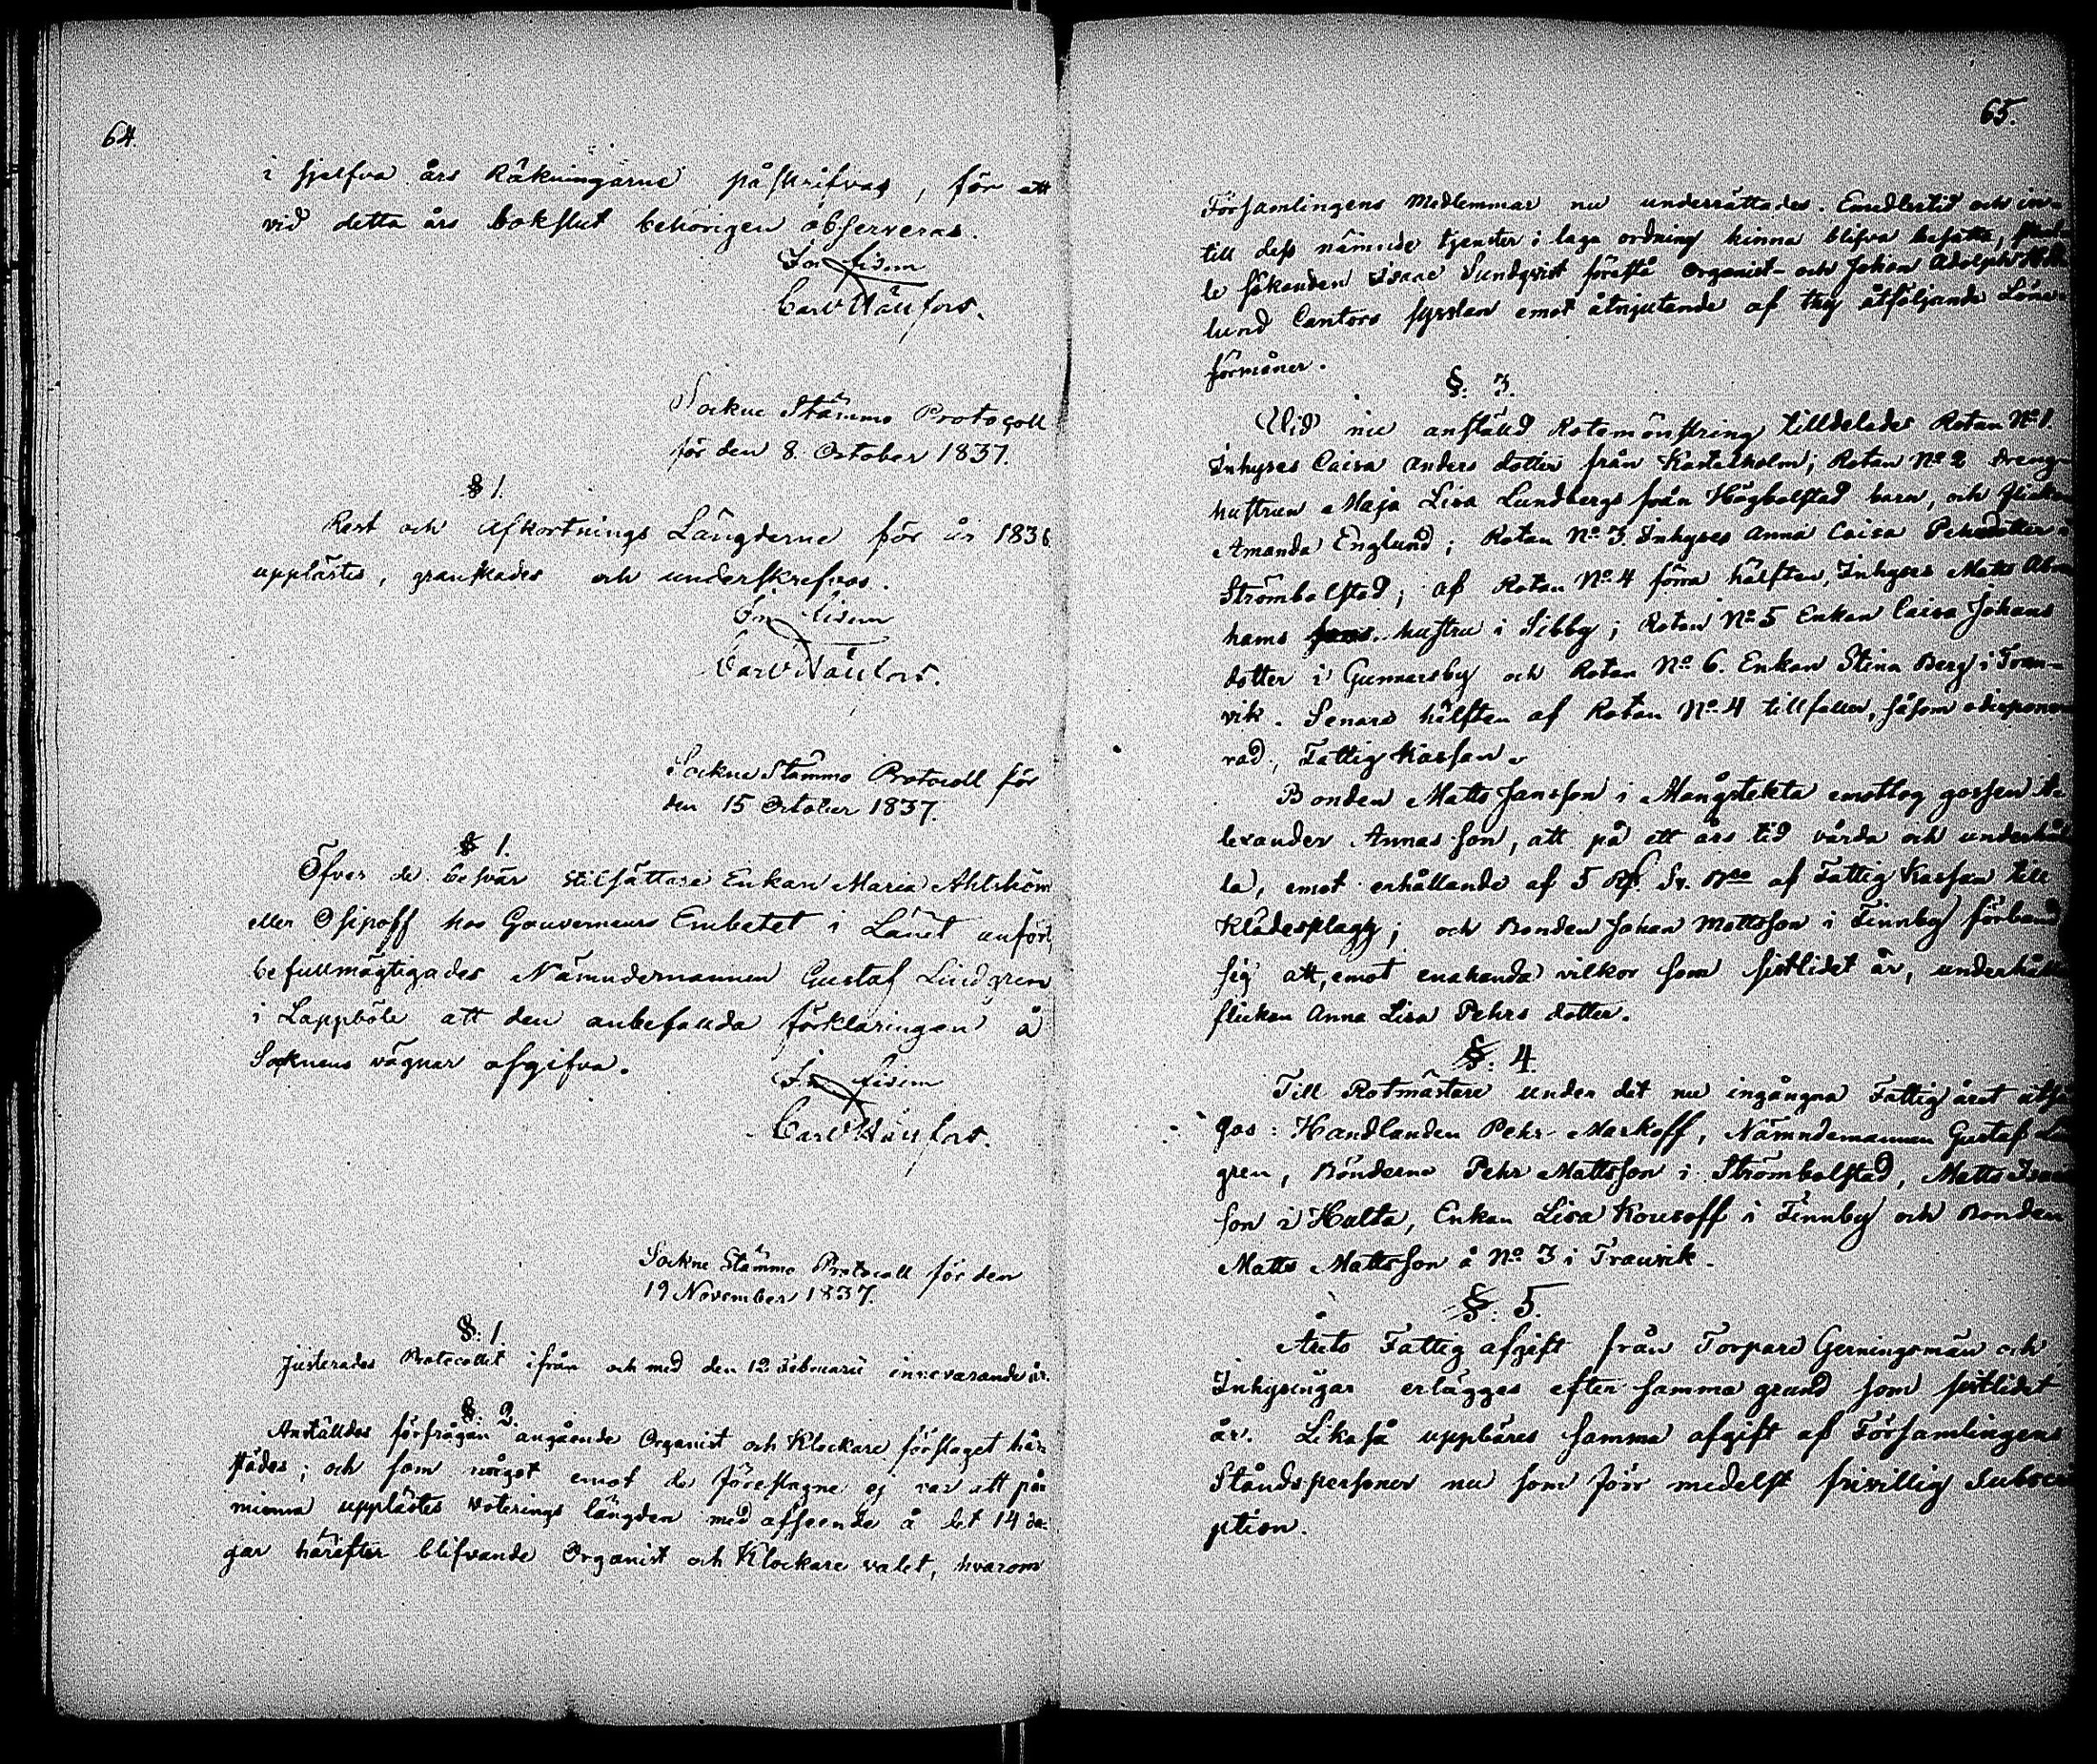 64.
i sjelfva års Räkningarne påskrifvas, för att
vid detta års bokslut behörigen observeras.
In fidem
Carl
Sockne Stämmo Protocoll
för den 8. October 1837.
§ 1.
Rest och Afkortnings Längderne för år 1836
upplästes, granskades och underskrefvos.
In fidem
Carl
Sockne Stämmo Protocoll för
den 15 October 1837.
§ 1.
Öfver de besvär Enkan Maria Ahlström
eller Osipoff hos Gouverneurs Embetet i Länet anfört,
befullmägtigades Nämndemannen Gustaf Lindgren
i Lappböle att den anbefallda förklaringen å
Socknens vägnar afgifva.
In fidem
Carl
Sockne Stämmo Protocoll för den
19 November 1837.
§. 1.
Justerades Protocollet ifrån och med den 12 Februarii innevarande år.
§. 2.
Anställdes förfrågan angående Organist och Klockare förslaget här-
städes; och som något emot de föreslagne ej var att på-
minna upplästes voterings längden med afseende å det 14 da-
gar härefter blifvande Organist och Klockare valet, hvarom
65.
Församlingens Medlemmar nu underrättades. Emedlertid och in-
till dess nämnde tjenster i laga ordning kunna blifva besatte,
le sökanden Isaac Sundqvist förestå Organist- och Johan Adolph
lund Cantors sysslan emot åtnjutande af åtföljande Löne-
förmåner.
§. 3.
Vid nu anställd Rotemönstring tilldelades Rotan No 1.
Inhyses Caisa Anders dotter från Kastelholm; Rotan No 2
hustrun Maja Lisa Lundbergs från Högbolstad barn, och flickan
Amanda Englund; Rotan No 3. Inhyses Anna Caisa Pehrsdotter i
Strömbolstad; af Rotan No 4 förra hälften, Inhyses Matts Abra
hams hustru i Sibby; Rotan No 5 Enkan Caisa Johans
dotter i Gunnarsby och Rotan No 6. Enkan Stina Berg i Tran-
vik. Senare hälften af Rotan No 4 tillfaller, såsom odispone
rad, Fattig Kassan.
Bonden Matts Jansson i Mångstekta emottog gossen A-
lexander Annas son, att på ett års tid vårda och underhål
la, emot erhållande af 5 R. Sr. Bco af Fattig Kassan till
Klädesplagg; och Bonden Johan Mattsson i Finnby förband
sig att, emot enahanda vilkor som sistlidet år, underhålla
flickan Anna Lisa Pehrs dotter.
§. 4.
Till Rotmästare under det nu ingångna Fattig året utså
gos: Handlanden Pehr Markoff, Nämndemannen Gustaf Lind
gren, Bönderne Pehr Mattsson i Strömbolstad, Matts Isaacs
son i Hulta, Enkan Lisa Kousoff i Finnby och Bonden
Matts Mattsson å No 3 i Tranvik.
§. 5.
Årets Fattig afgift från Torpare Gerningsmän och
Inhysingar erlägges efter samma grund som sistlidet
år. Likaså uppbäres samma afgift af Församlingens
Ståndspersoner nu som förr medelst frivillig Subscri
ption.